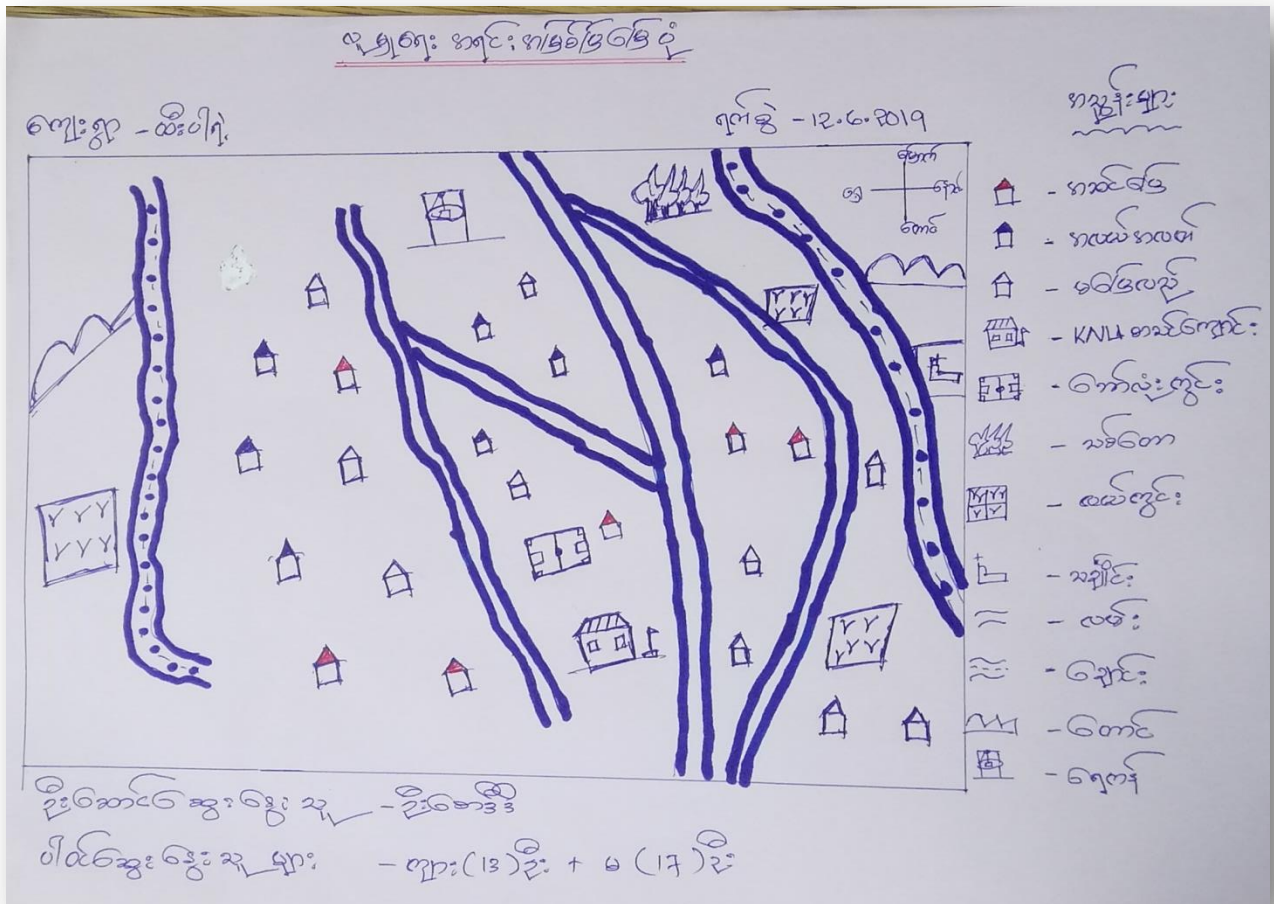 လူမှုရေး အရင်းအမြစ်ပြမြေပုံ
ကျေးရွာ - ထီးပါရဲ့
ရက်စွဲ - ၁၃.၆.၂၀၁၉
မြောက်
နောက်
တောင်
အညွှန်းများ
- အဆင်ပြေ
- အလယ်အလတ်
- မပြေလည်
- KNU စာသင်ကျောင်း
- ဘော်လုံးကွင်း
- သစ်တော
- လယ်ကွင်း
- သင်္ချိုင်း
- လမ်း
- ချောင်း
- တောင်
- ရေကန်
ဦးဆောင်ဆွေးနွေးသူ - ဦးစောဒီဒို
ပါဝင်ဆွေးနွေးသူများ - ကျား (13) ဦး + မ (17) ဦး